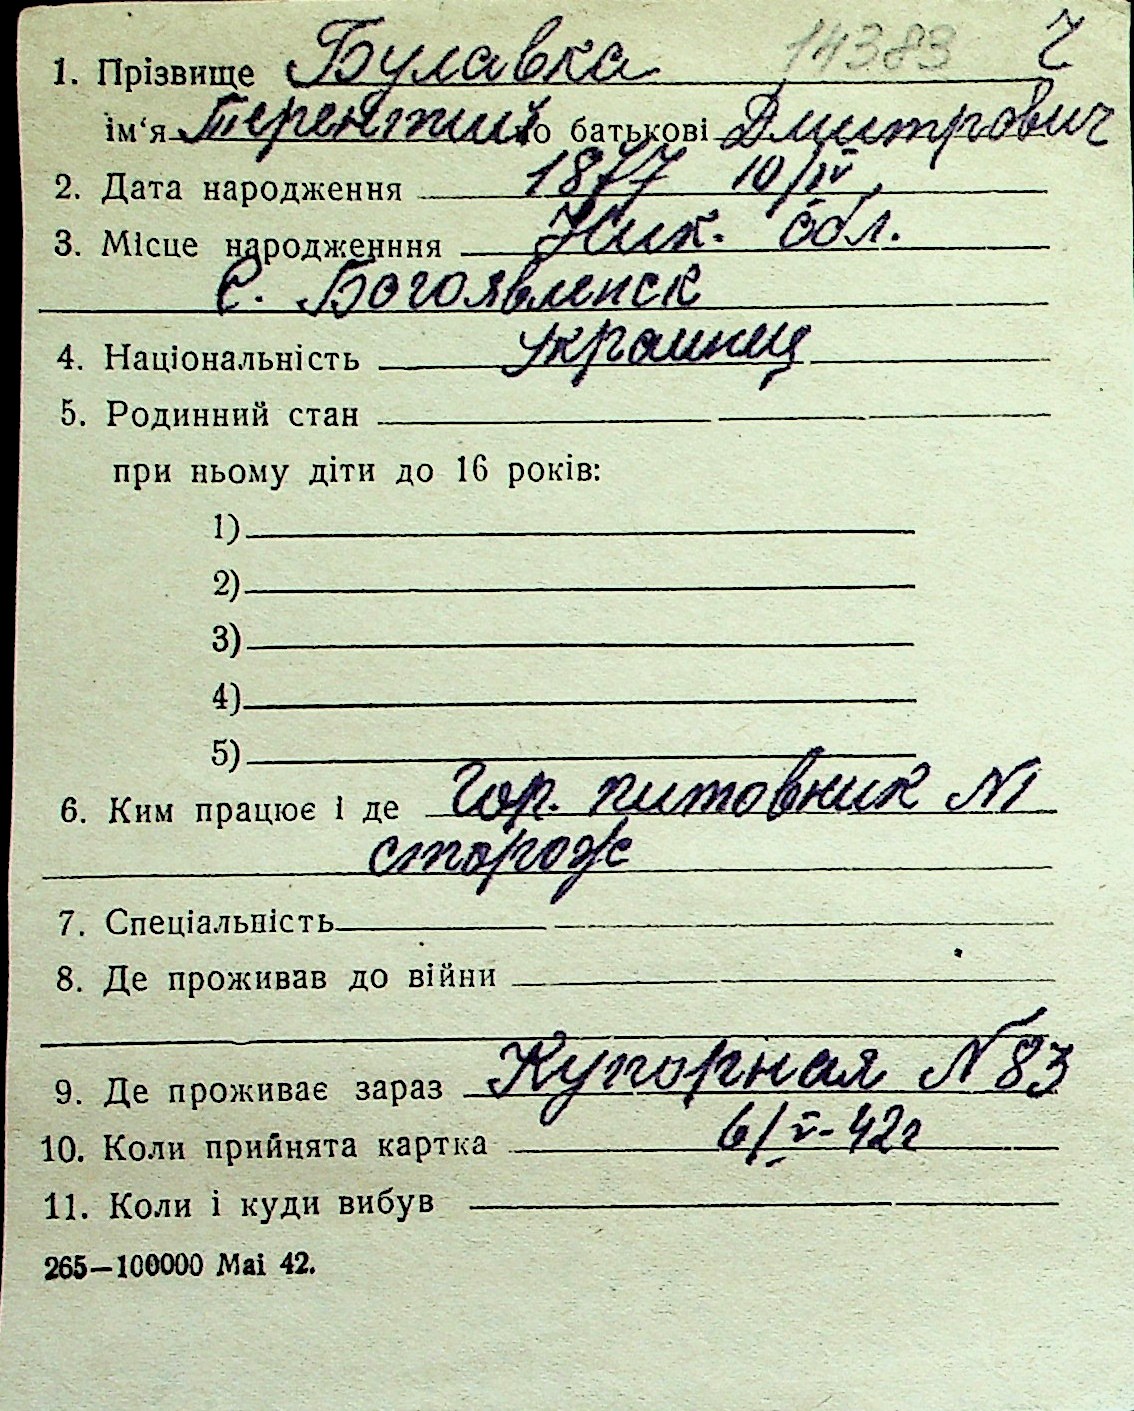 1. Прізвище Булавка 14383 Ч
ім‘я Терентий по батькові Дмитрович
2. Дата народження 1877 10/IV
3. Місце народженння Ник. обл.
с. Богоявленск
4. Національність украинец
5. Родинний стан
при ньому діти до 16 років:
1)
2)
3)
4)
5)
6. Ким працює і де Гор. питовник №1
сторож
7. Спеціальність
8. Де проживав до війни
9. Де проживає зараз Купорная №83
10. Коли прийнята картка 6/V-42г
11. Коли і куди вибув
265—100000 Mai 42.